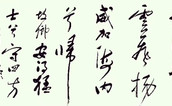 雲飛揚
威加海内
兮歸
故鄉安得猛
士兮守四方